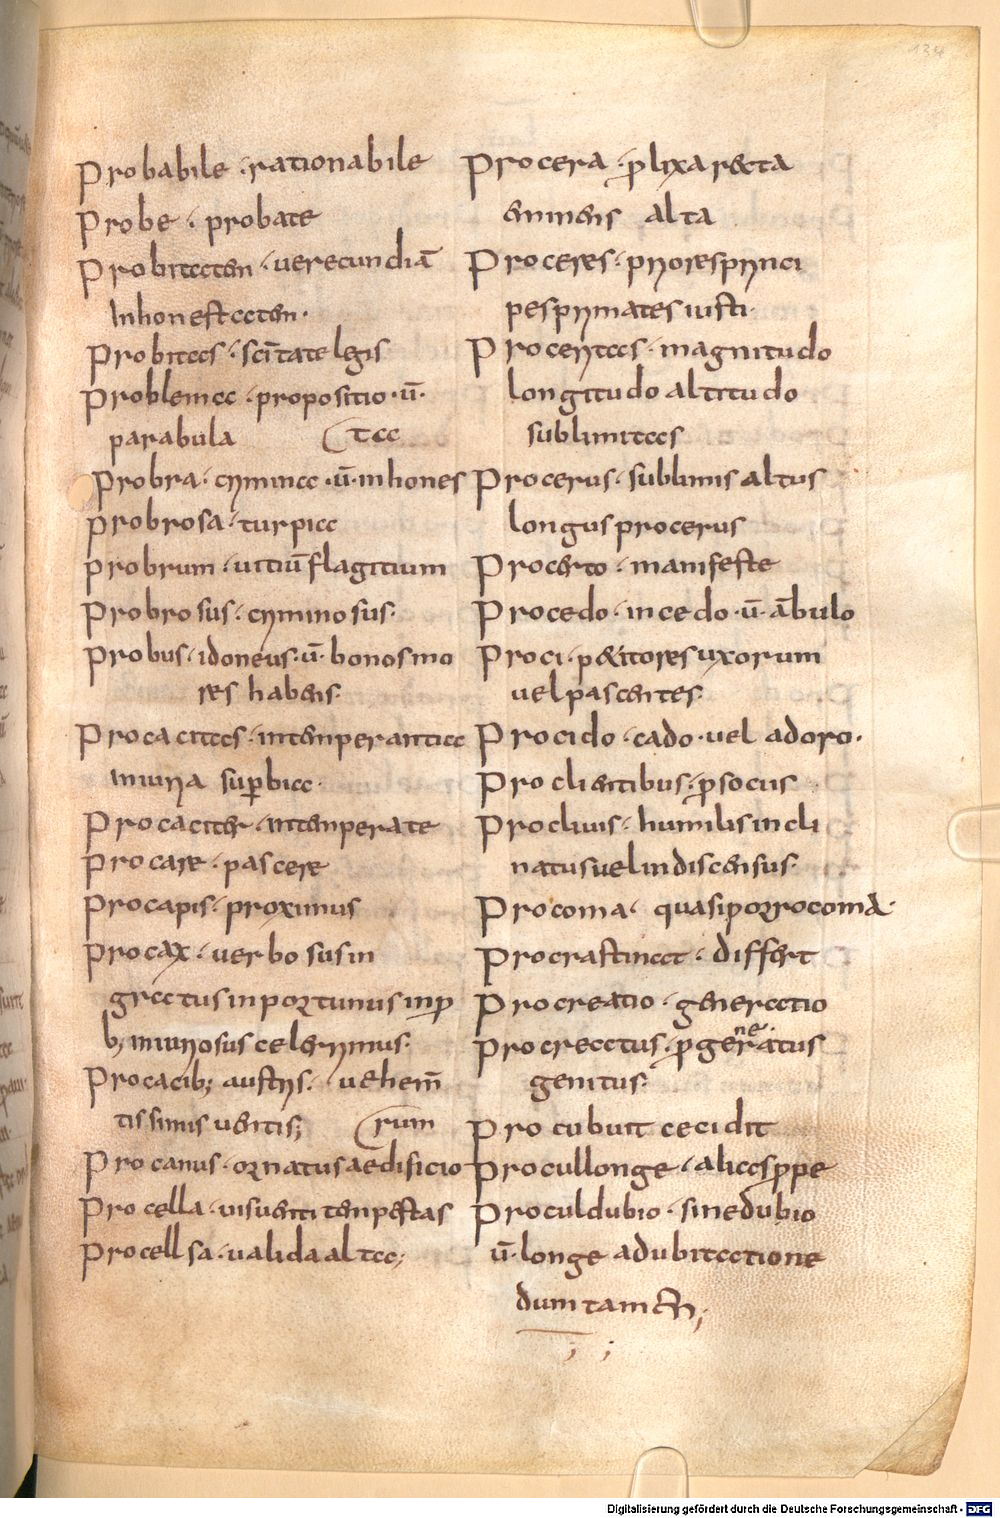 134
Probabile · rationabile
Probe · probate
Probitatem · uerecundiā
Inhonestatem ·
Probitas · scītate legis
Problema · propositio · ū ·
parabula (ta
Probra · crimina · ū · inhones
Probrosa · turpia
Probrum · uitiū flagitium
Probrosus · criminosus ·
Probus · idoneus · ū · bonos mo
res habens ·
Procacitas · intemperantia
iniuria sup̄bia ·
Procaciter · intemperate
Procare · pascere
Procapis · proximus
Procax · uerbosus in
gratus inportunus inp̄
b; iniuriosus celerrimus ·
Procacib; austris · uehem̄
tissimis uentis; (rum
Procanus · ornatus aedificio
Procella · uis uenti tempestas
Procellsa · ualida alta;
Procera · p̄lixa recta
eminens alta
Proceres · priores princi
pes primates iusti ·
Proceritas · magnitudo
longitudo altitudo
sublimitas
Procerus · sublimis altus
longus procerus
Procerto · manifeste
Procedo · incedo · ū · ābulo
Proci · petitores uxorum
uel pascentes ·
Procido · cado · uel adoro ·
Proclientibus · p̄socius
Procliuis · humilis incli
natus uel indiscensus ·
Procoma · quasi porrocoma ·
Procrastinat · differt
Procreatio · generatio
Procreatus · p̄generatus
ne
genitus ·
Procubuit cecidit
Procul longe · alias p̄pe
Proculdubio · sine dubio
ū · longe a dubitatione
dum tam en;
; ;
Digitalisierung gefördert durch die Deutsche Forschungsgemeinschaft - DFG